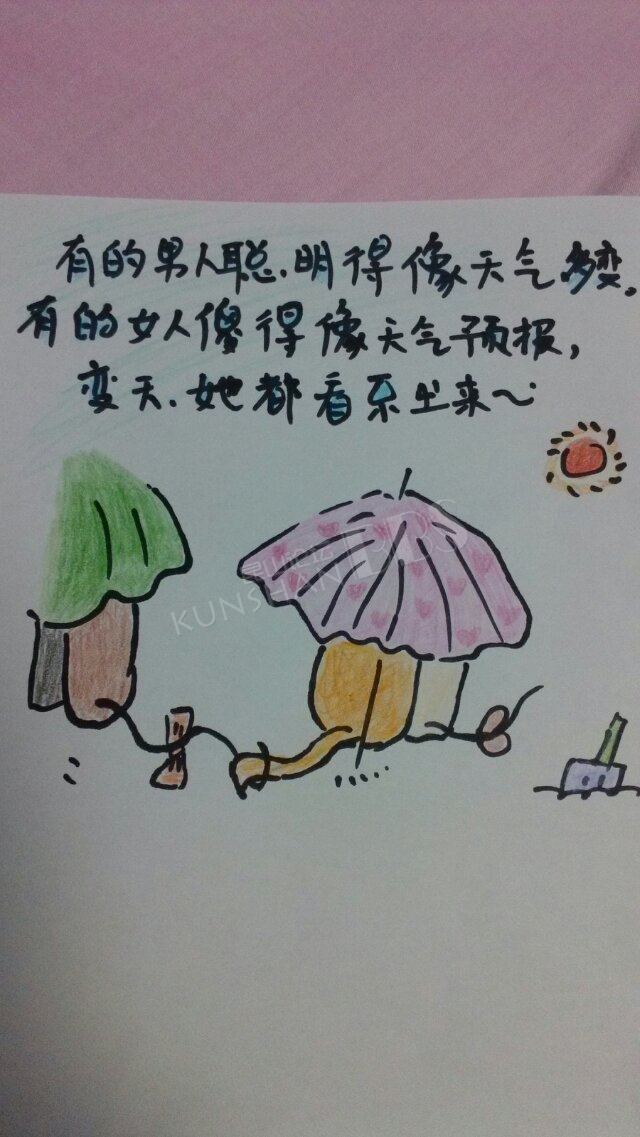 有的男人聪.明得像天气多变.
有的女人傻得像天气预报,
变天.她都看不出来~
昆山论坛 BBS
KUNSHAN